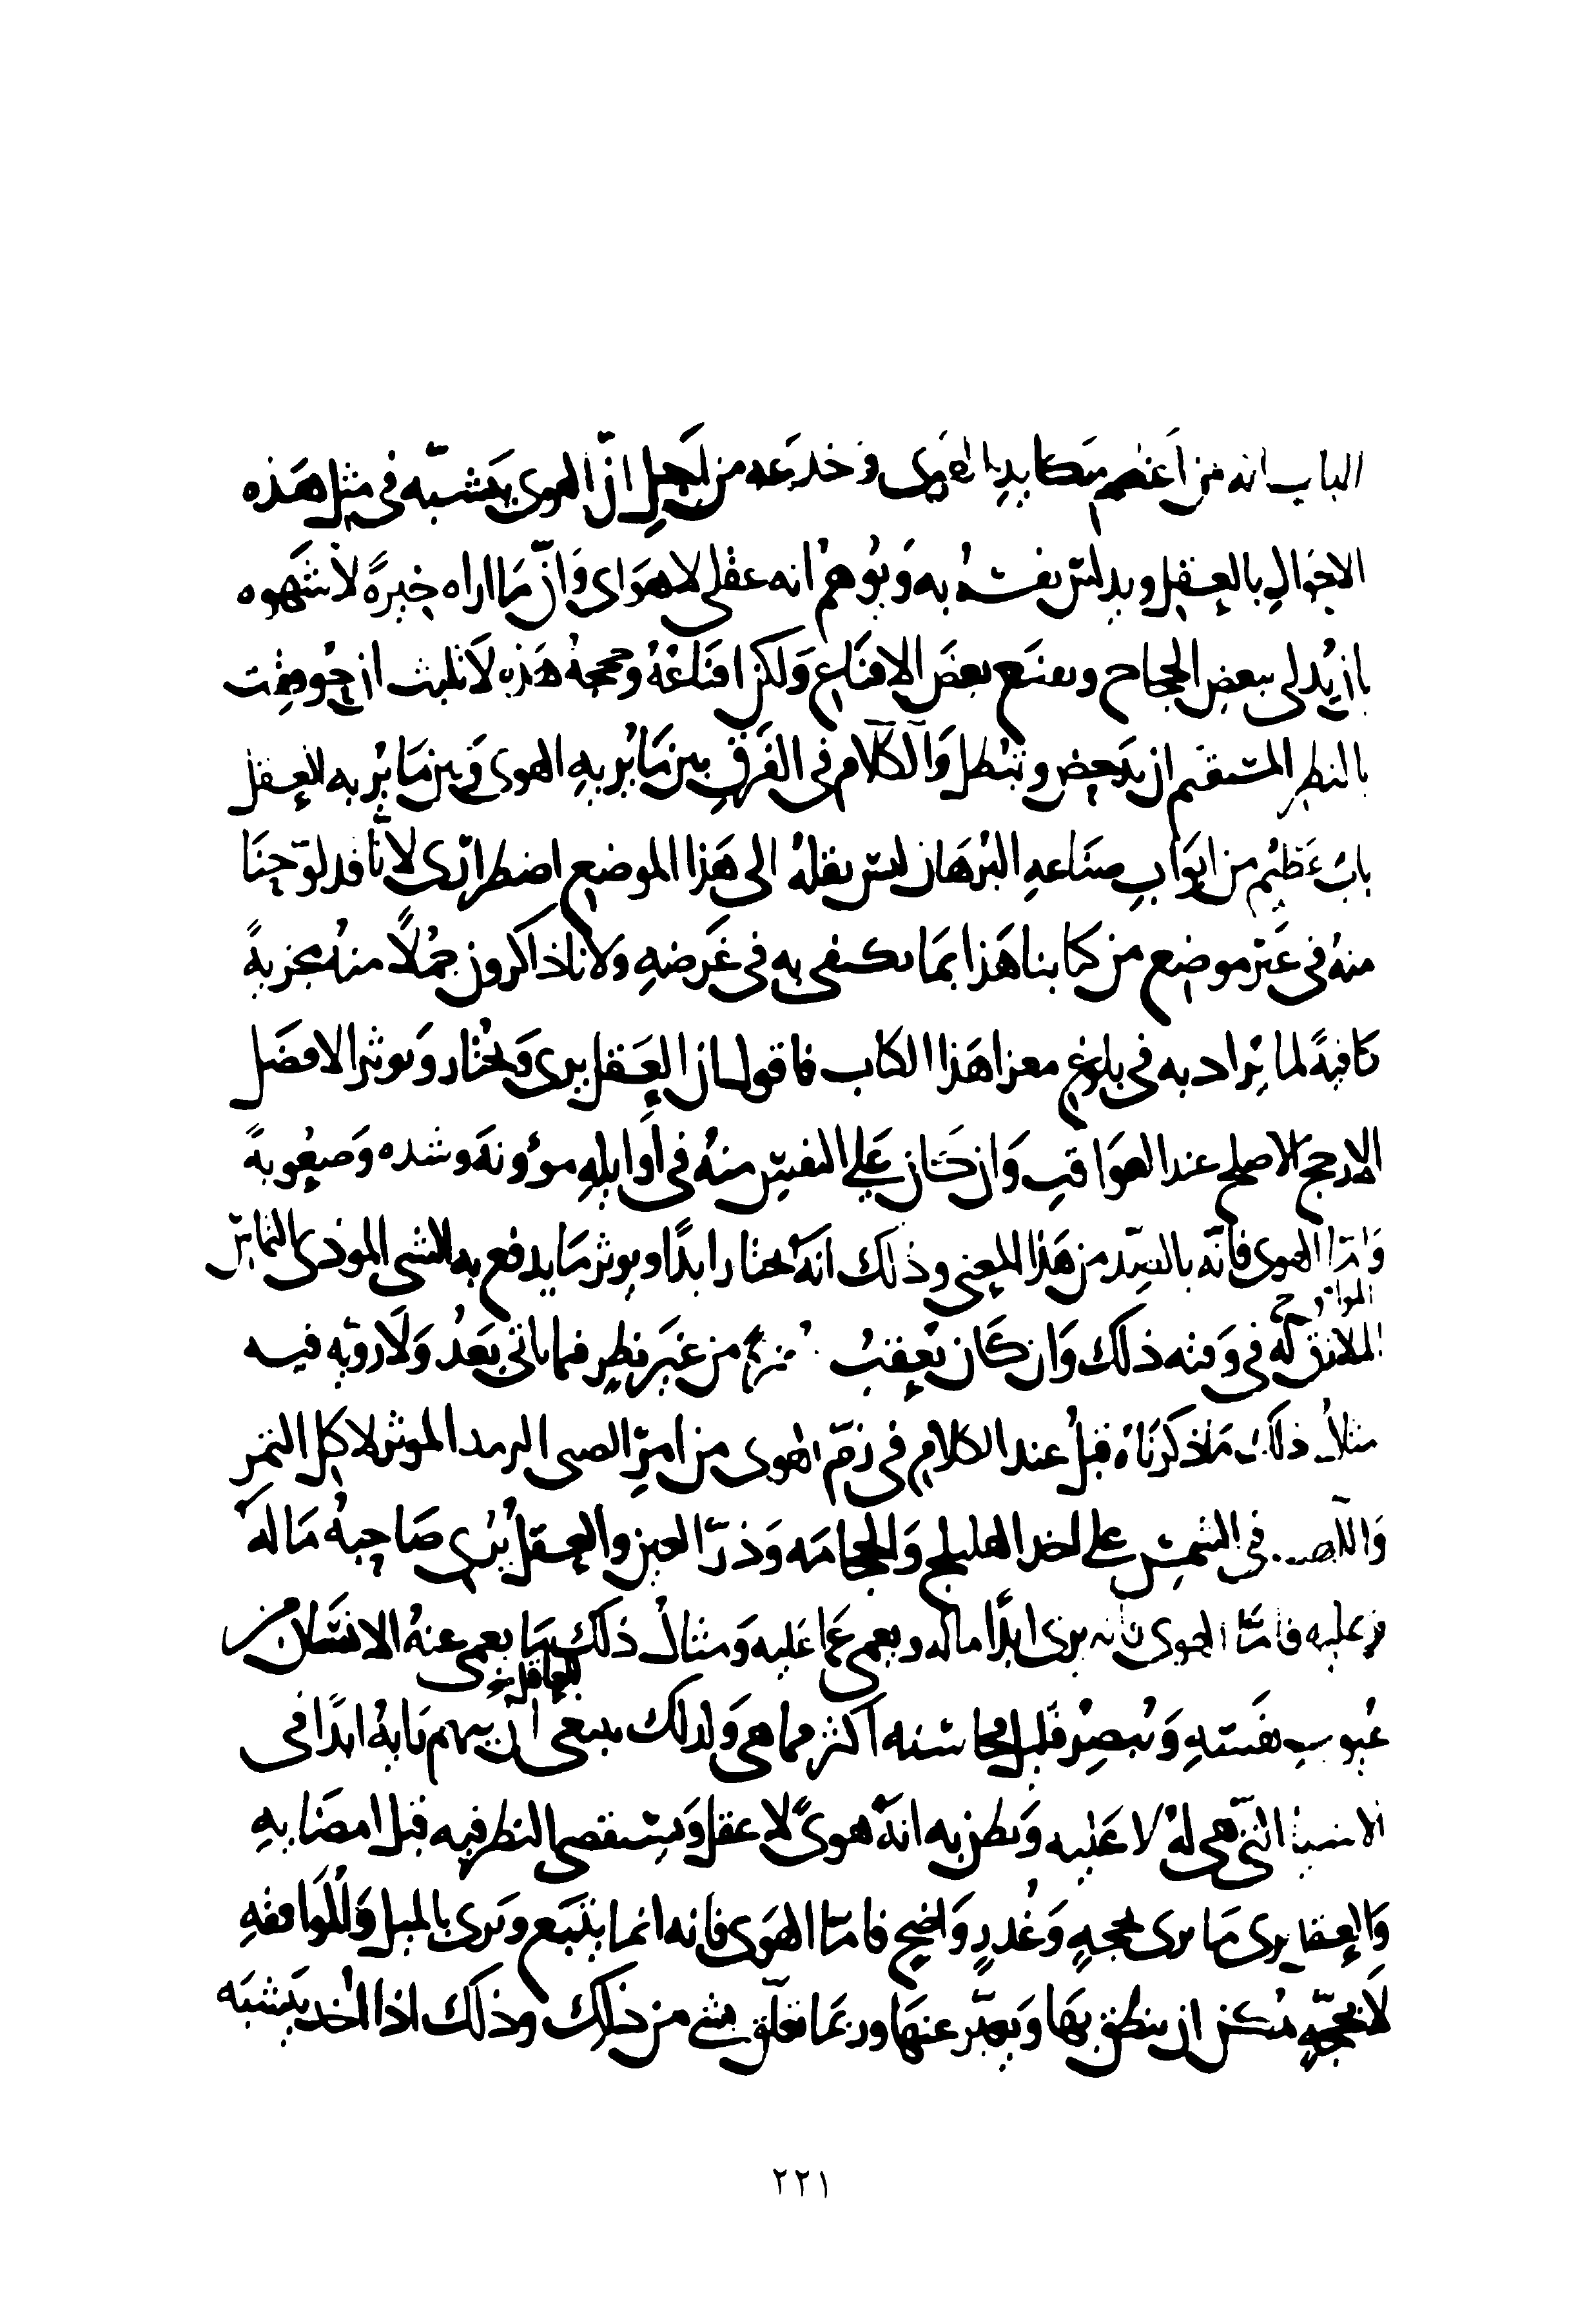 الباب انه من اعظم مكايد الهوى و خدعه من اجل ان الهوى يتشبه في مثل هذه
الاحوال بالعقل ويدلس نفسه به ويوهم انه عقلي لا هواى وان ما اراه خيرة لا شهوه
بان يدلى ببعض الحجاج ويقنع بعض الاقناع ولكن اقناعه وحججه هذه لا تلبث ان حوصت
بالنظر المستقيم ان يدحض وتبطل والكلام في الفرق بين ما يُريه الهوى وبين ما يُريه العقل
باب عظيم من ابواب صناعه البرهان ليس نقله الى هذا الموضع اضطرارى لانا قد لوّحنا
منه في غير موضع من كتابنا هذا بما يكتفى به في غرضه ولانا ذاكرون جملًا منه مجزيةً
كافيةً لما يُراد به في بلوغ مغزا هذا الكتاب فاقول ان العقل يرى ويختار ويوثر الافضل
الارجح الاصلح عند العواقب وان كان على النفس منه في اوايله موٴونة وشده وصعوبةً
وامّا الهوى فانّه بالضد من هذا المعنى وذلك انّه يختار ابدًا ويوثر ما يدفع به الشي الموذى المماس
الملازق له في وقته ذلك وان كان يعقب من غير نظر فيما ياتي بعدُ ولا رويّه فيه
مثال ذلك ما ذكرناه قبلُ عند الكلام في زمّ الهوى من امر الصبى الرمد الموثر لاكل التمر
واللعب في الشمس على اخذ الهليلج والحجامه وذرّ العين والعقل يُرى صاحبهُ ما لهُ
وعليه فامّا الهوى فانه يرى ابدًا ماله ويعمى عما عليه ومثال ذلك ما يعمى عنهُ الانسان من
للعاقل
عيوب نفسه ويبصر قليل محاسنه اكثر مما هي ولذلك ينبغى ان يتهم رايهُ ابدًا في
الاشيا التي هي لهُ لا عليه ويظن به انّه هوىً لا عقل ويستقصى النظر فيه قبل امضايه
والعقل يرى ما يرى بحجهٍ وعُذرٍ واضح فامّا الهوى فانه انما يتبع ويرى بالميل والموافقه
لا بحجّهٍ يمكن ان ينطق بها ويعبّر عنها وربما تعلّق بشي من ذلك وذلك اذا اخذ يتشبه
٢٢١